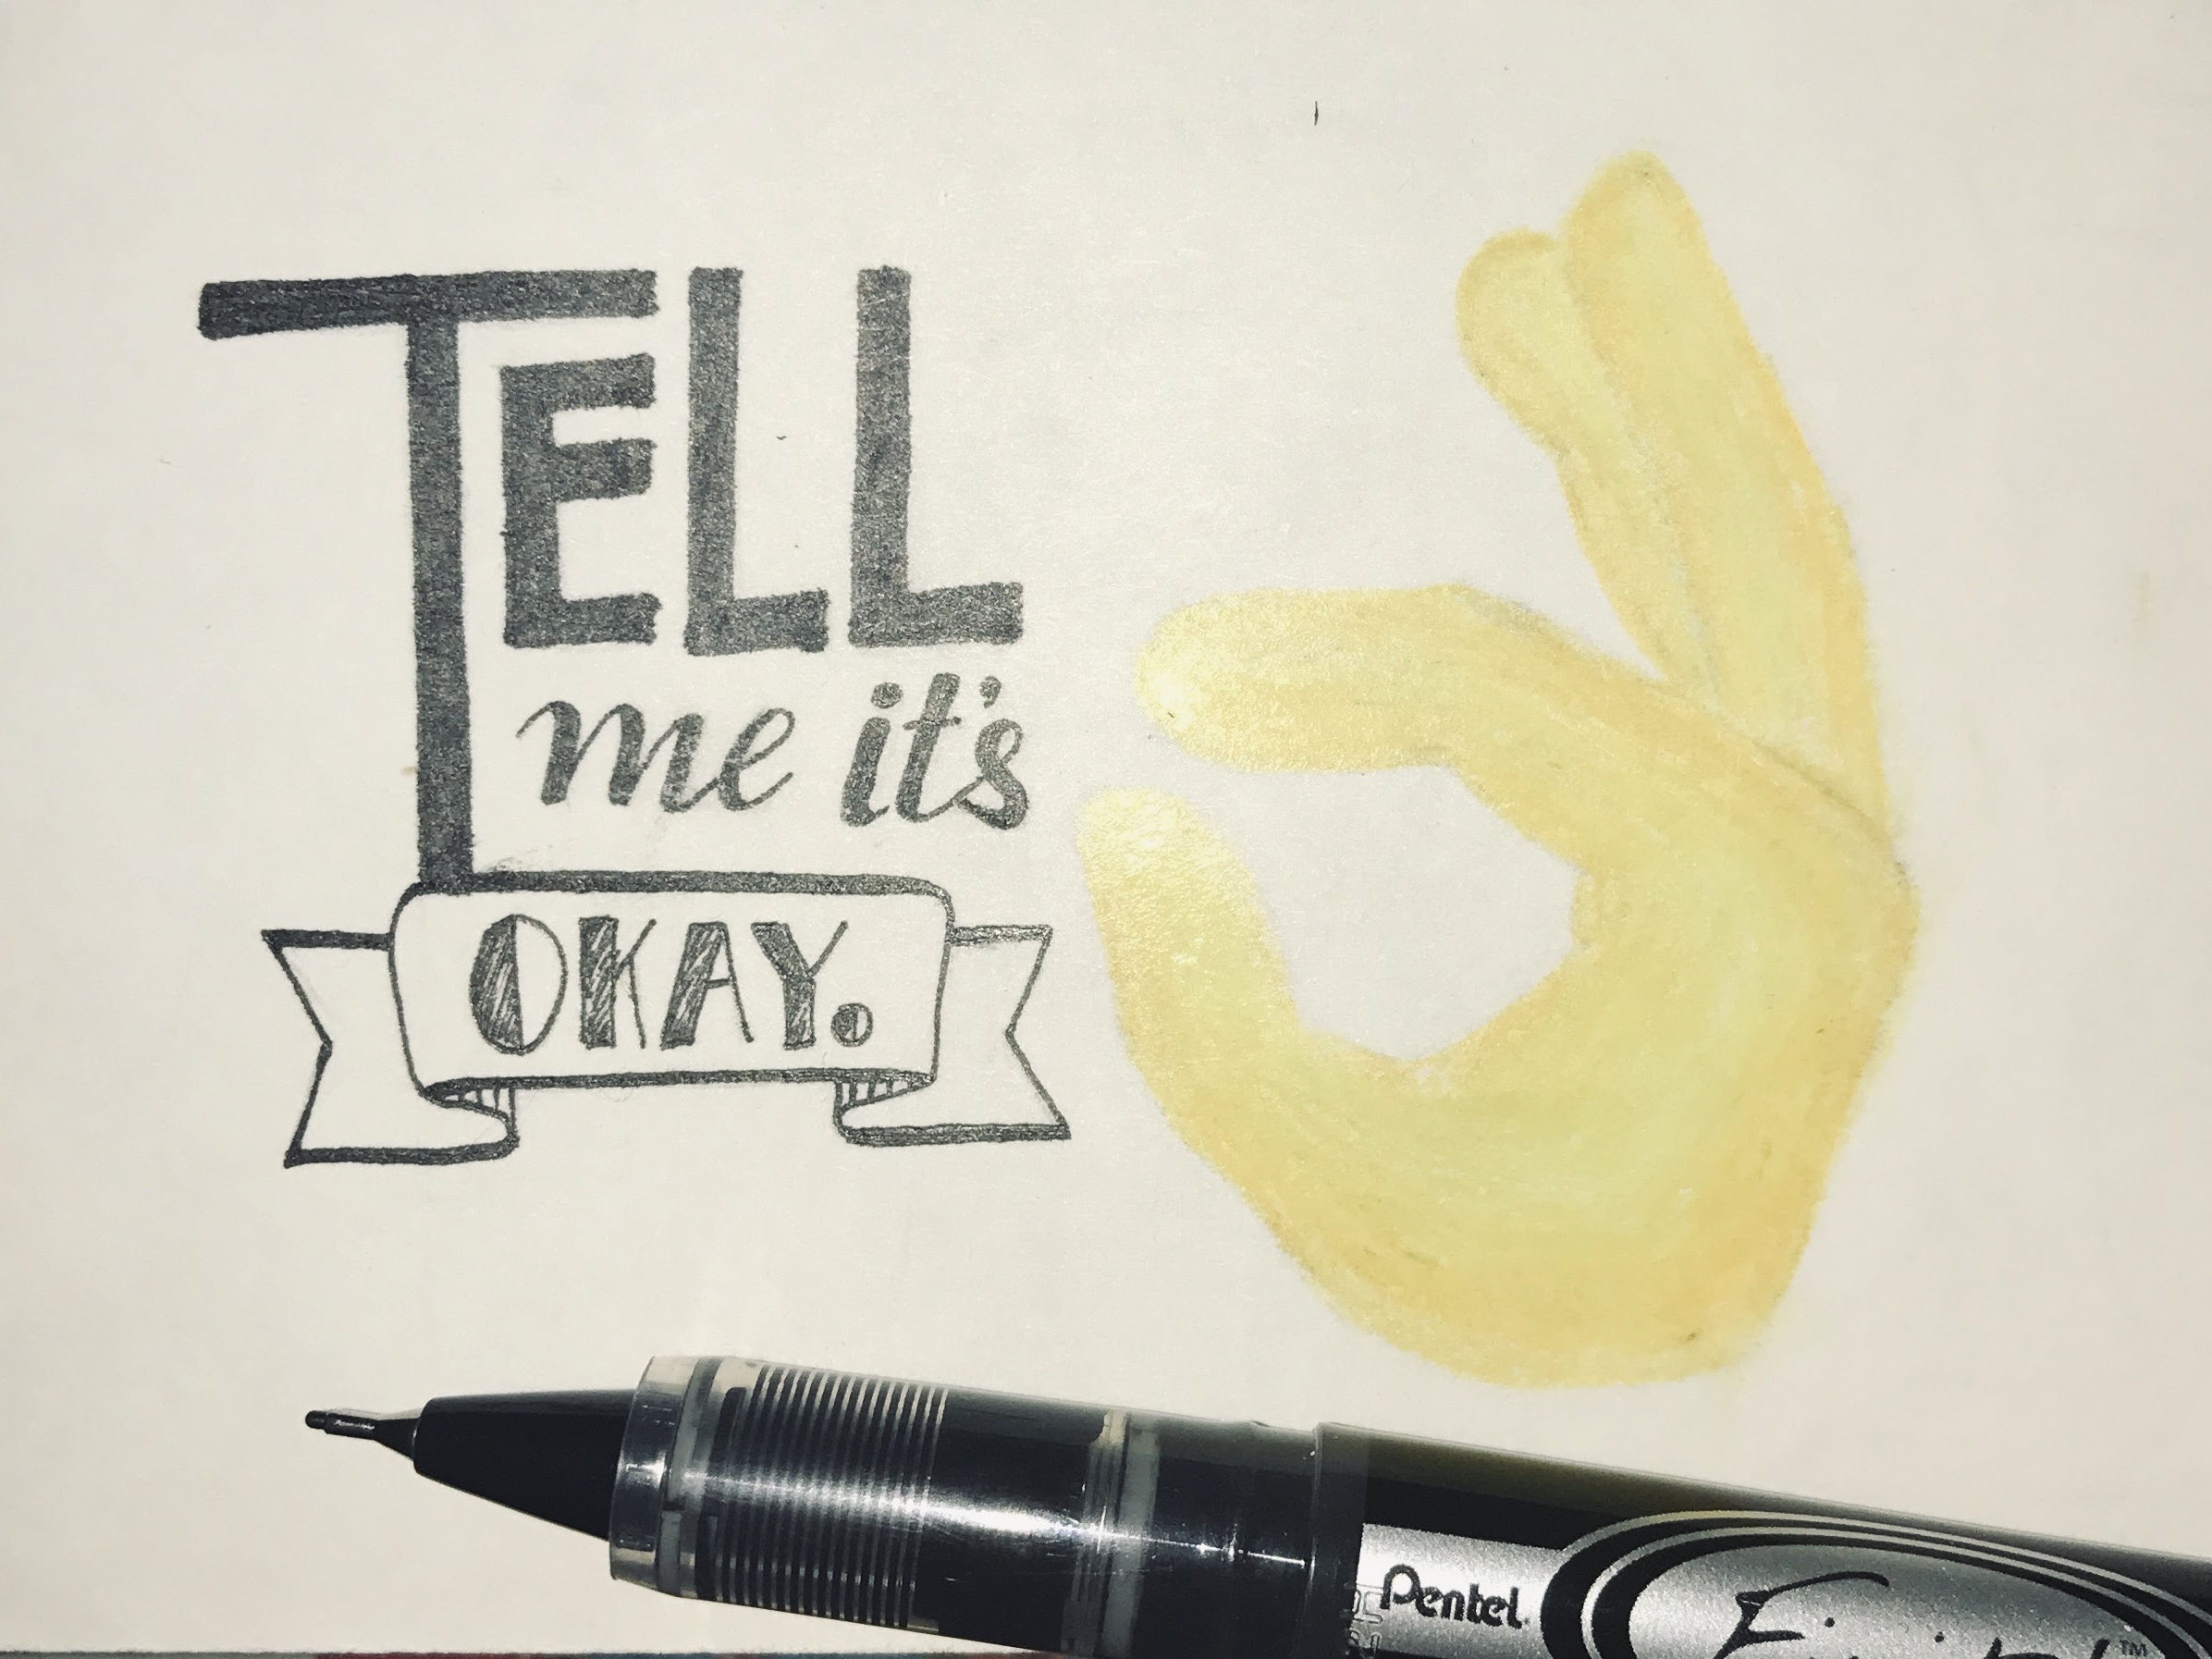 TELL
me it's
OKAY.
Pentel
TM